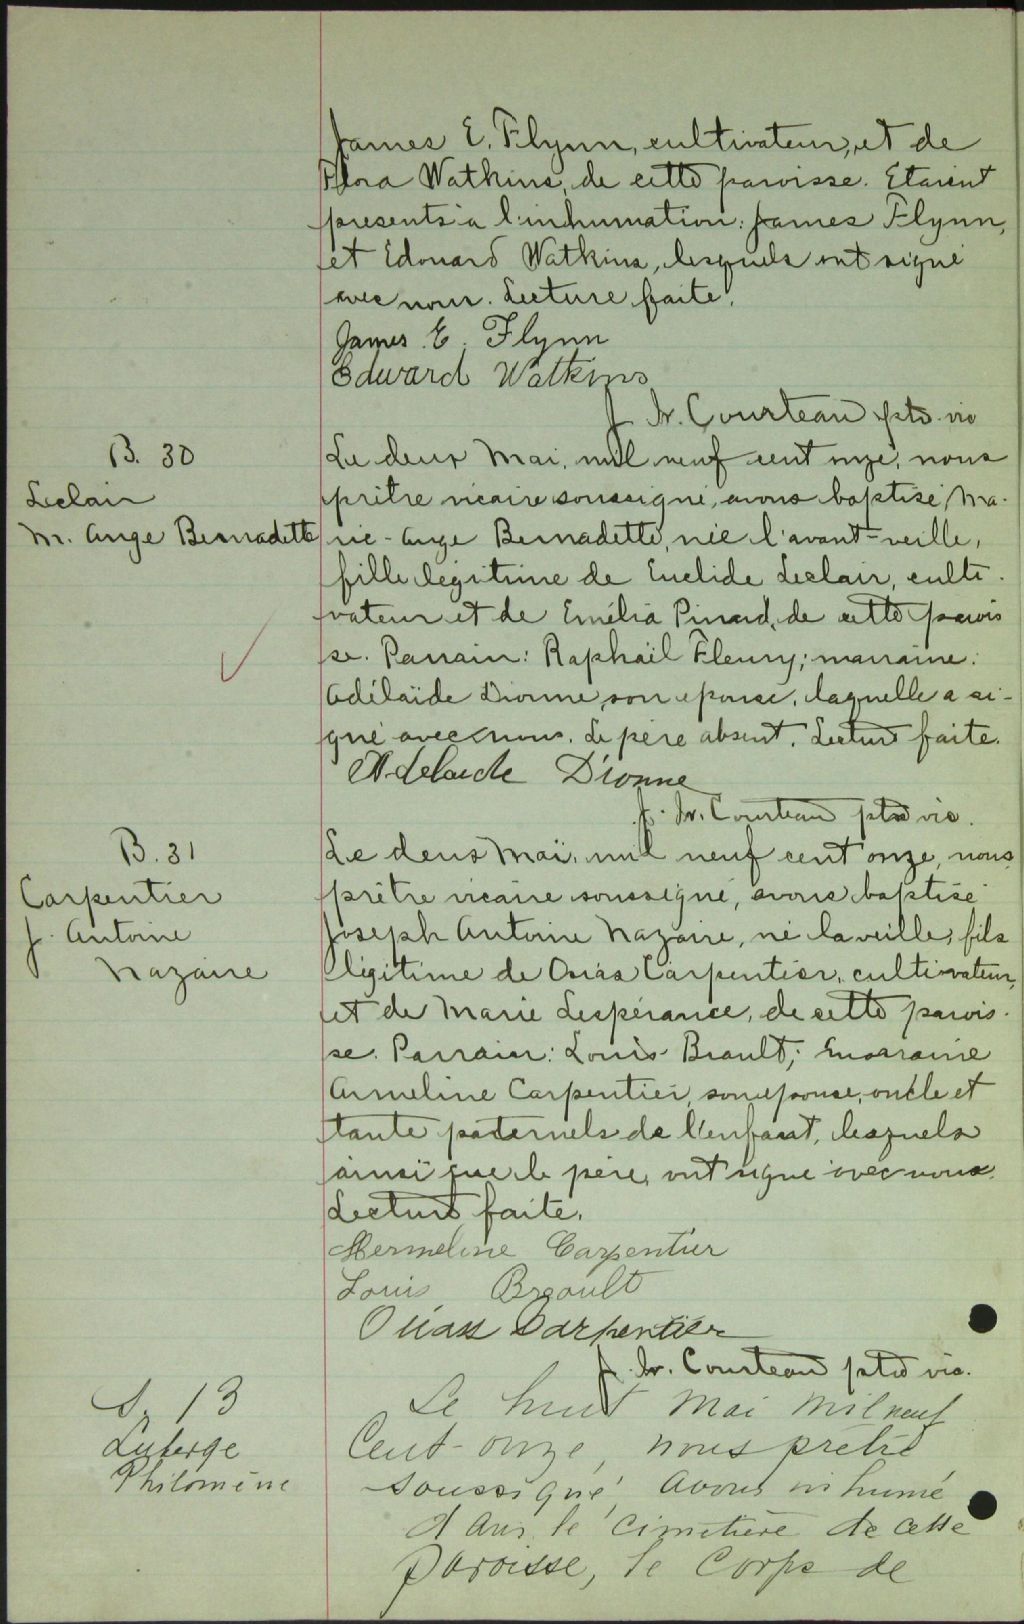 James E. Flynn, cultivateur, et de
Flora Watkins, de cette paroisse. Etaient
presents à l'inhumation: James Flynn,
et Edouard Watkins, lesquels ont signé
avec nous. Lecture faite.
James E. Flynn
Edward Watkins
J. Courteau ptre vic
B. 30
Leclair
M. Ange Bernadette
Le deux Mai, mil neuf cent onze, nous
prêtre vicaire soussigné, avons baptisé, Ma-
rie-Ange Bernadette, née l'avant-veille,
fille légitime de Euclide Leclair, culti-
vateur et de Emélia Pinard, de cette parois
se. Parrain: Raphaël Fleury; marraine:
Adélaïde Dionne, son epouse, laquelle a si-
gné avec nous. Le père absent. Lecture faite.
Adelaide Dionne
J. Courteau ptre vic.
B. 31
Carpentier
J. Antoine
Nazaire
Le deux Mai, mil neuf cent onze, nous
prêtre vicaire soussigné, avons baptisé
Joseph Antoine Nazaire, né la veille, fils
légitime de Osias Carpentier, cultivateur,
et de Marie Lespérance, de cette parois-
se. Parrain: Louis Brault; marraine
Armeline Carpentier, son epouse, oncle et
tante paternels de l'enfant, lesquels
ainsi que le père, ont signé avec nous.
Lecture faite.
Hermeline Carpentier
Louis Breault
Osias Carpentier
J. Courteau ptre vic.
S. 13
Laberge
Philomène
Le huit Mai mil neuf
Cent-onze, nous prêtre
soussigné, avons inhumé
dans le cimetière de cette
paroisse, le corps de